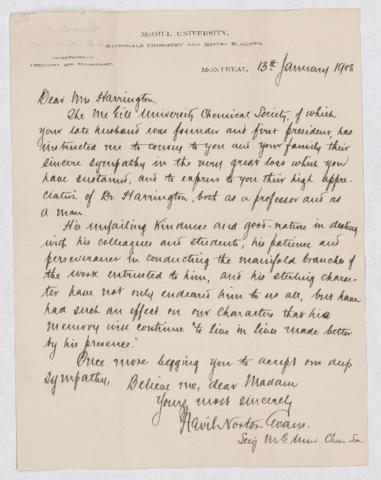 McGILL UNIVERSITY,
MACDONALD CHEMISTRY AND MINING BUILDING.
DEPARTMENT OF
CHEMISTRY AND MINERALOGY.
MONTREAL, 13th January 1908
Dear Mrs. Harrington.
The McGill University Chemical Society, of which
your late husband was founder and first president, has
instructed me to convey to you and your family their
sincere sympathy in the very great loss which you
have sustained, and to express to you their high appre-
ciation of Dr. Harrington, both as a professor and as
a man.
His unfailing kindness and good-nature in dealing
with his colleagues and students, his patience and
perseverance in conducting the manifold branches of
the work entrusted to him, and his sterling charac-
ter have not only endeared him to us all, but have
had such an effect on our characters that his
memory will continue "to live in lives made better
by his presence."
Once more begging you to accept our deep
sympathy, Believe me, dear Madam
Yours most sincerely
Nevil Norton Evans.
Secy McG. Univ. Chem. Soc.